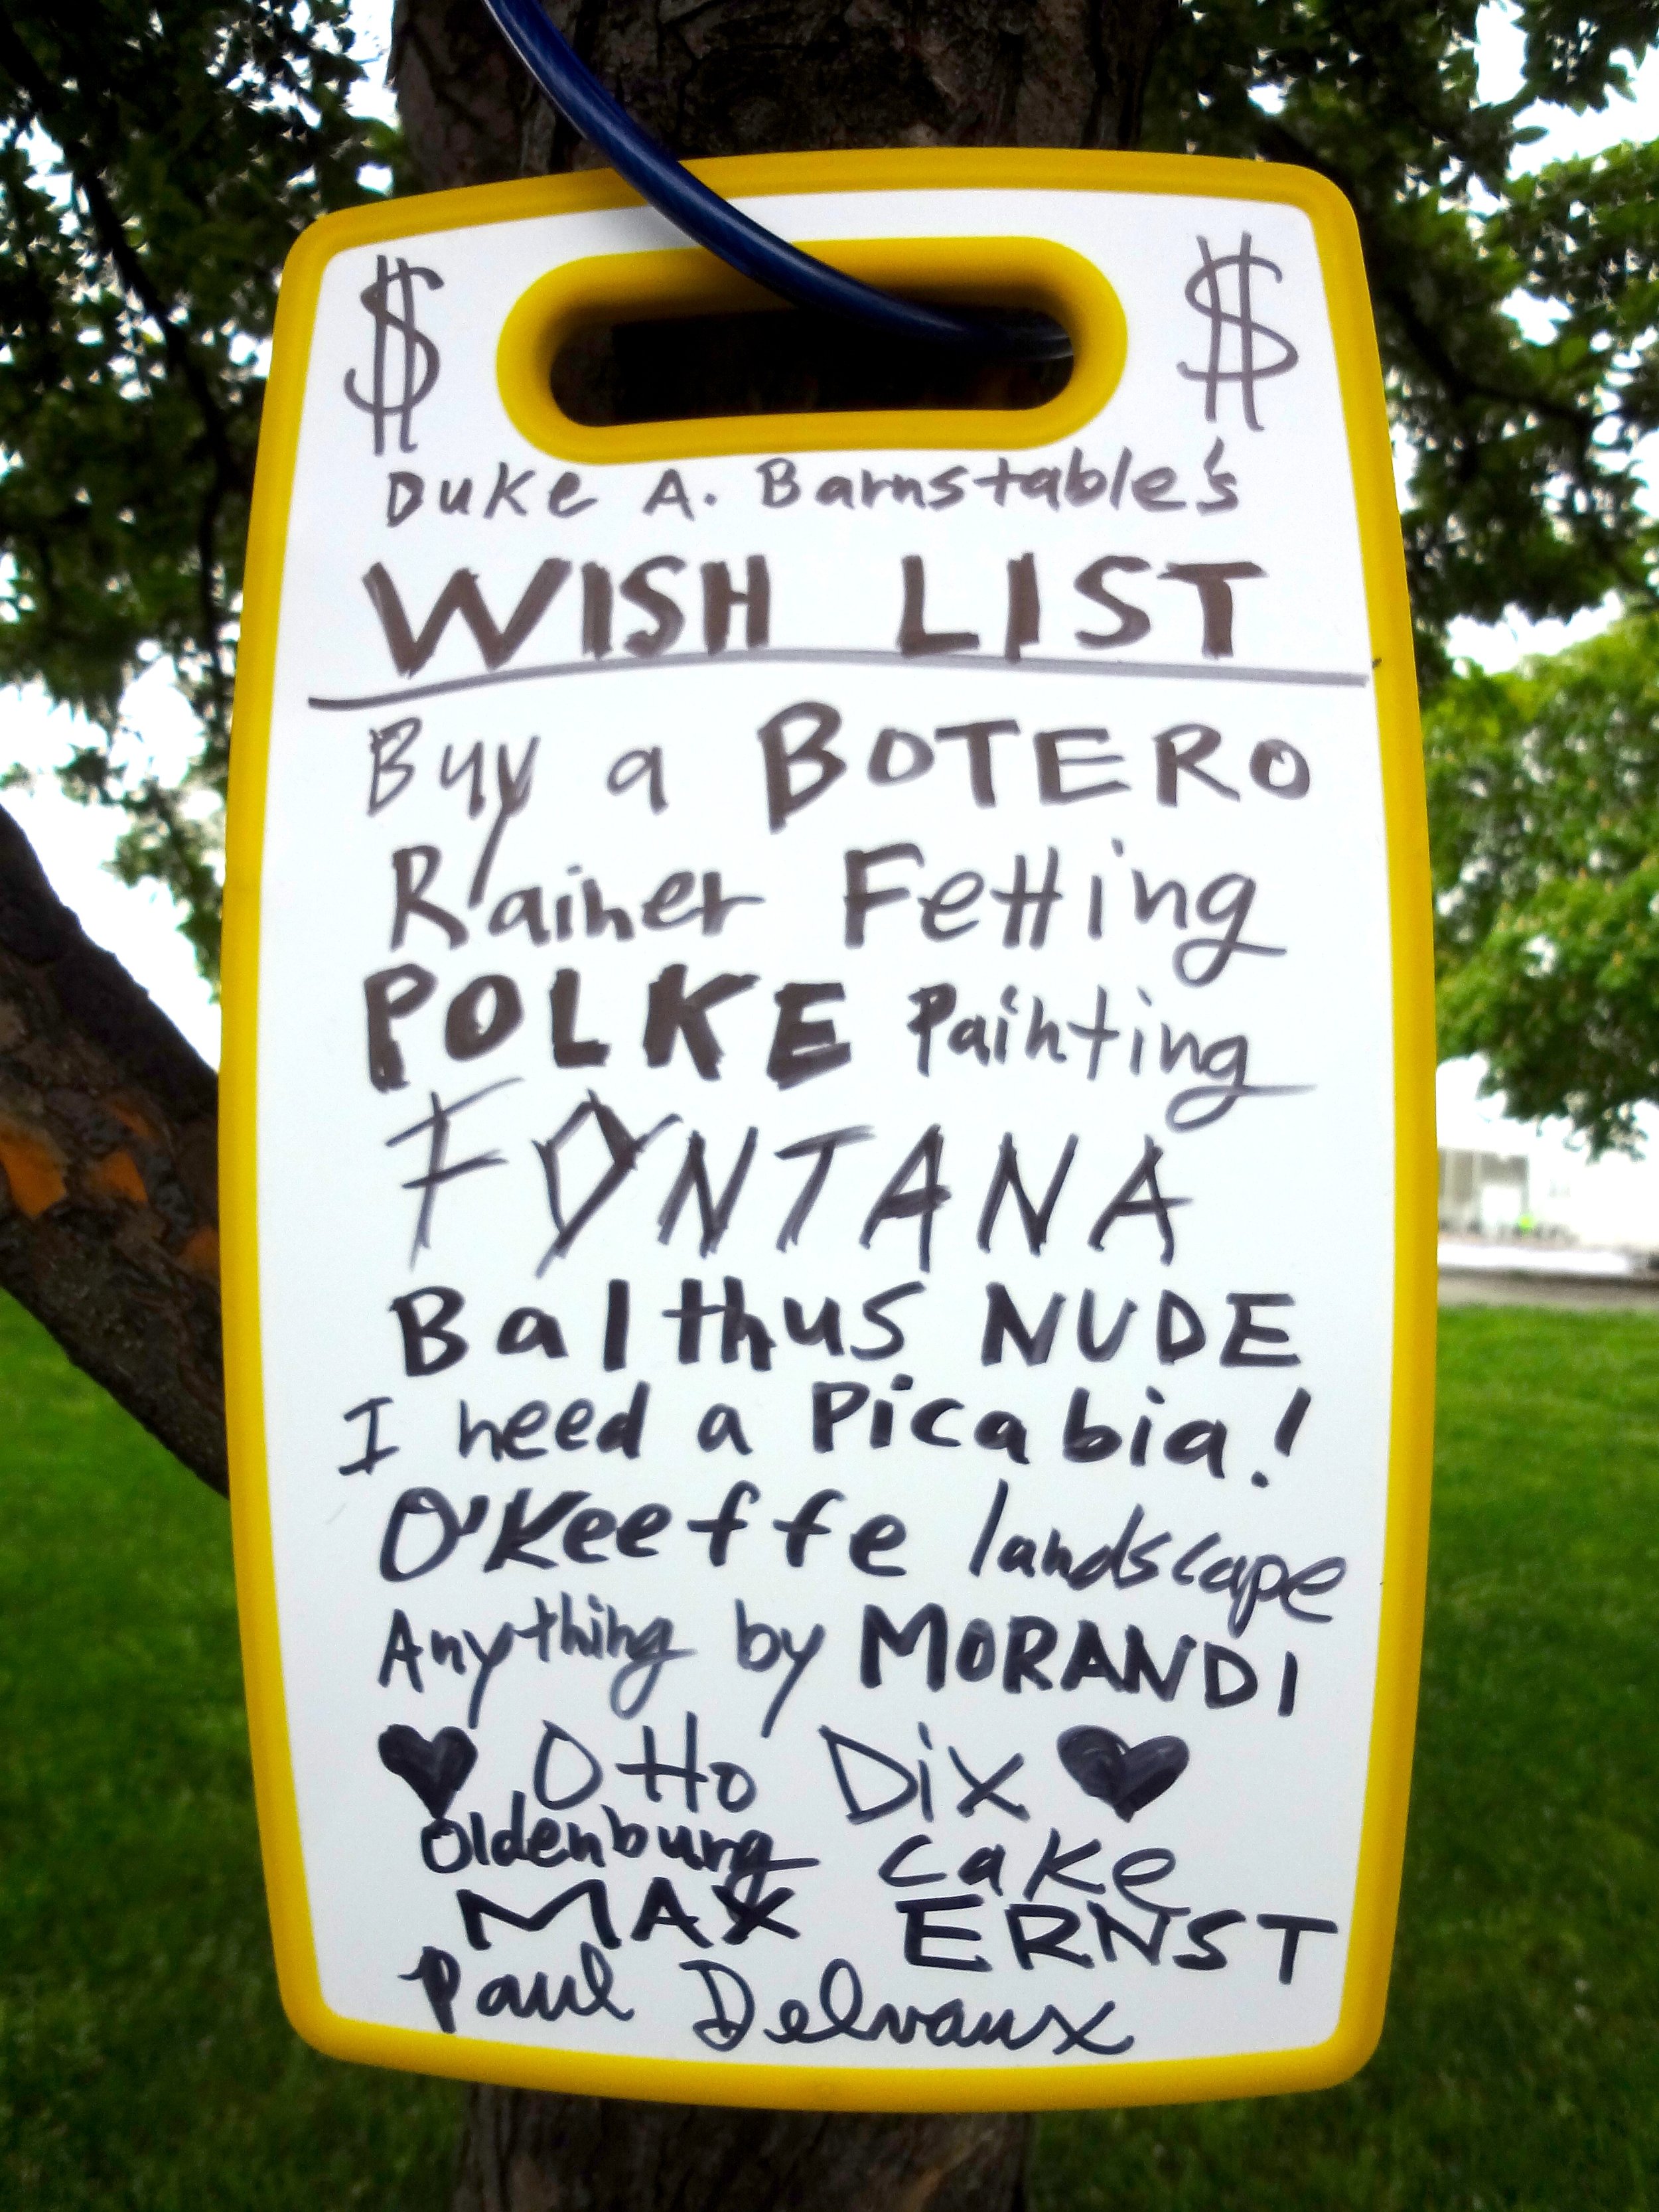 $ $
Duke A. Barnstable's
WISH LIST
Buy a BOTERO
Rainer Fetting
POLKE Painting
FONTANA
Balthus NUDE
I need a Picabia!
O'Keeffe landscape
Anything by MORANDI
♥ Otto Dix ♥
Oldenburg cake
MAX ERNST
Paul Delvaux